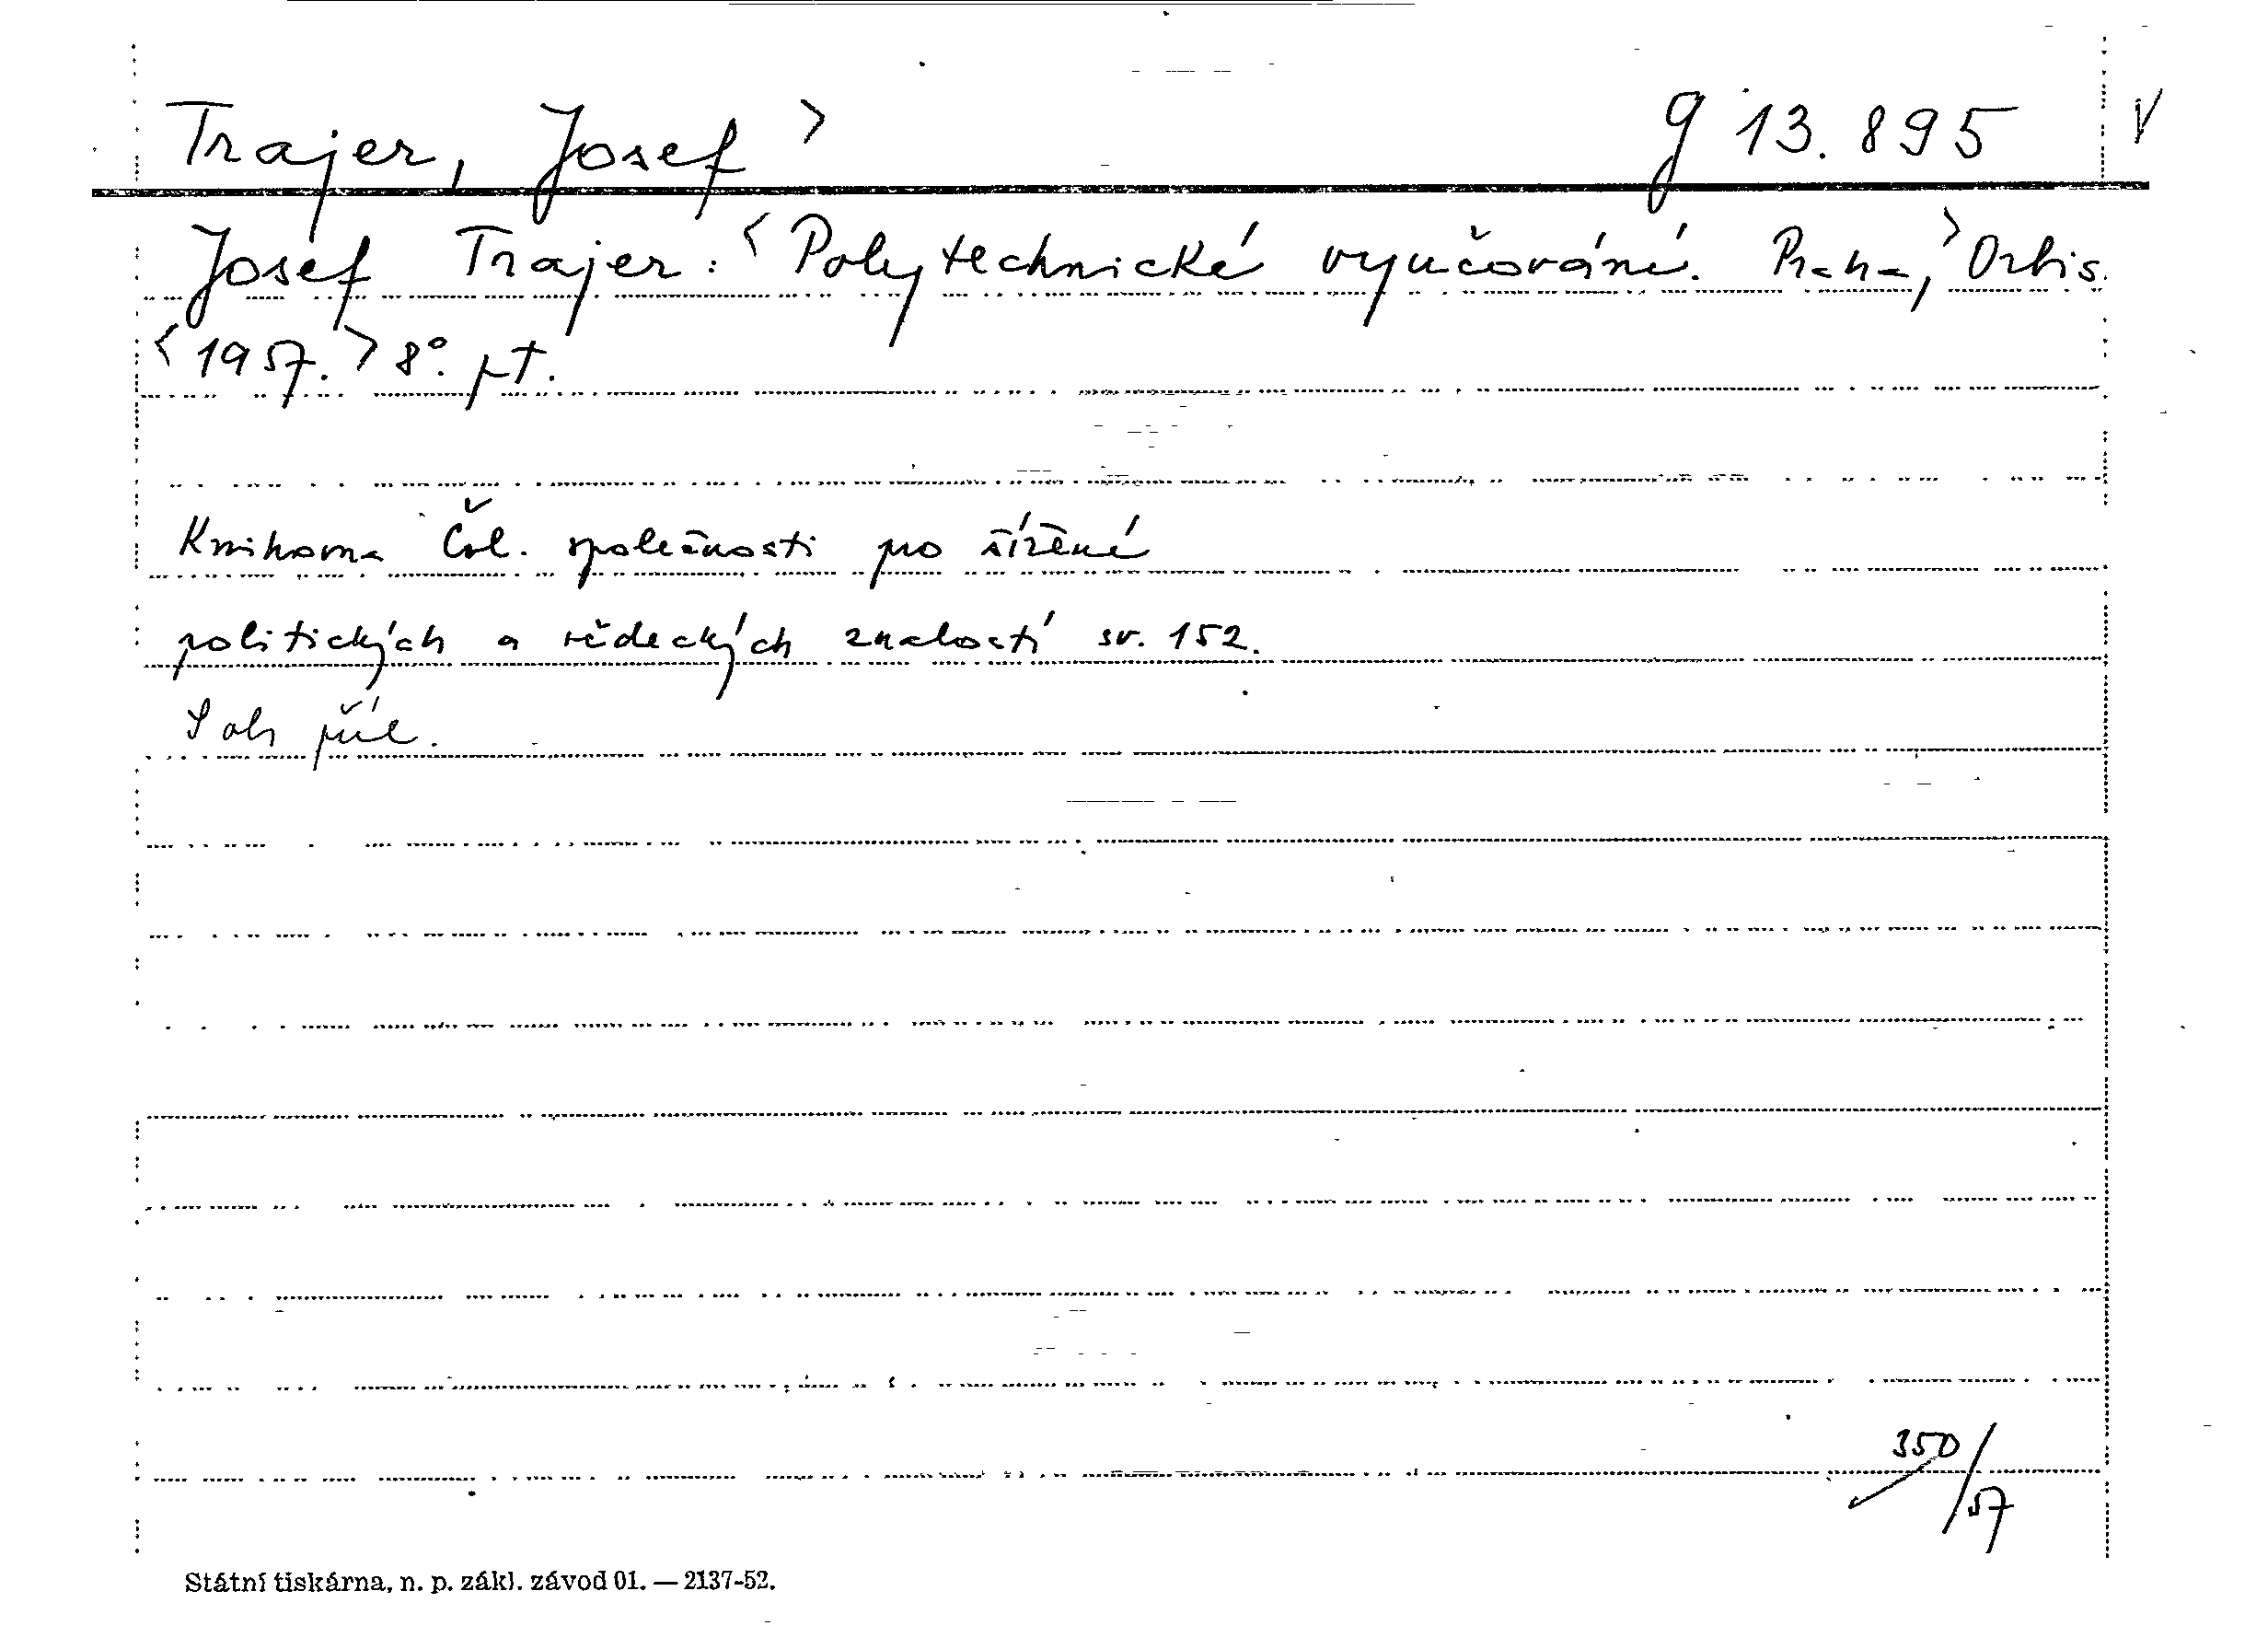 Trajer, Josef > g 13.895 V
Josef Trajer: <Polytechnické vyučování. Praha,> Orbis.
<1957.> 8°. pt.
Knihovna Čsl. společnosti pro šíření
politických a vědeckých znalostí sv. 152.
S obr. příl.
350/57
Státní tiskárna, n. p. zákl. závod 01. — 2137-52.